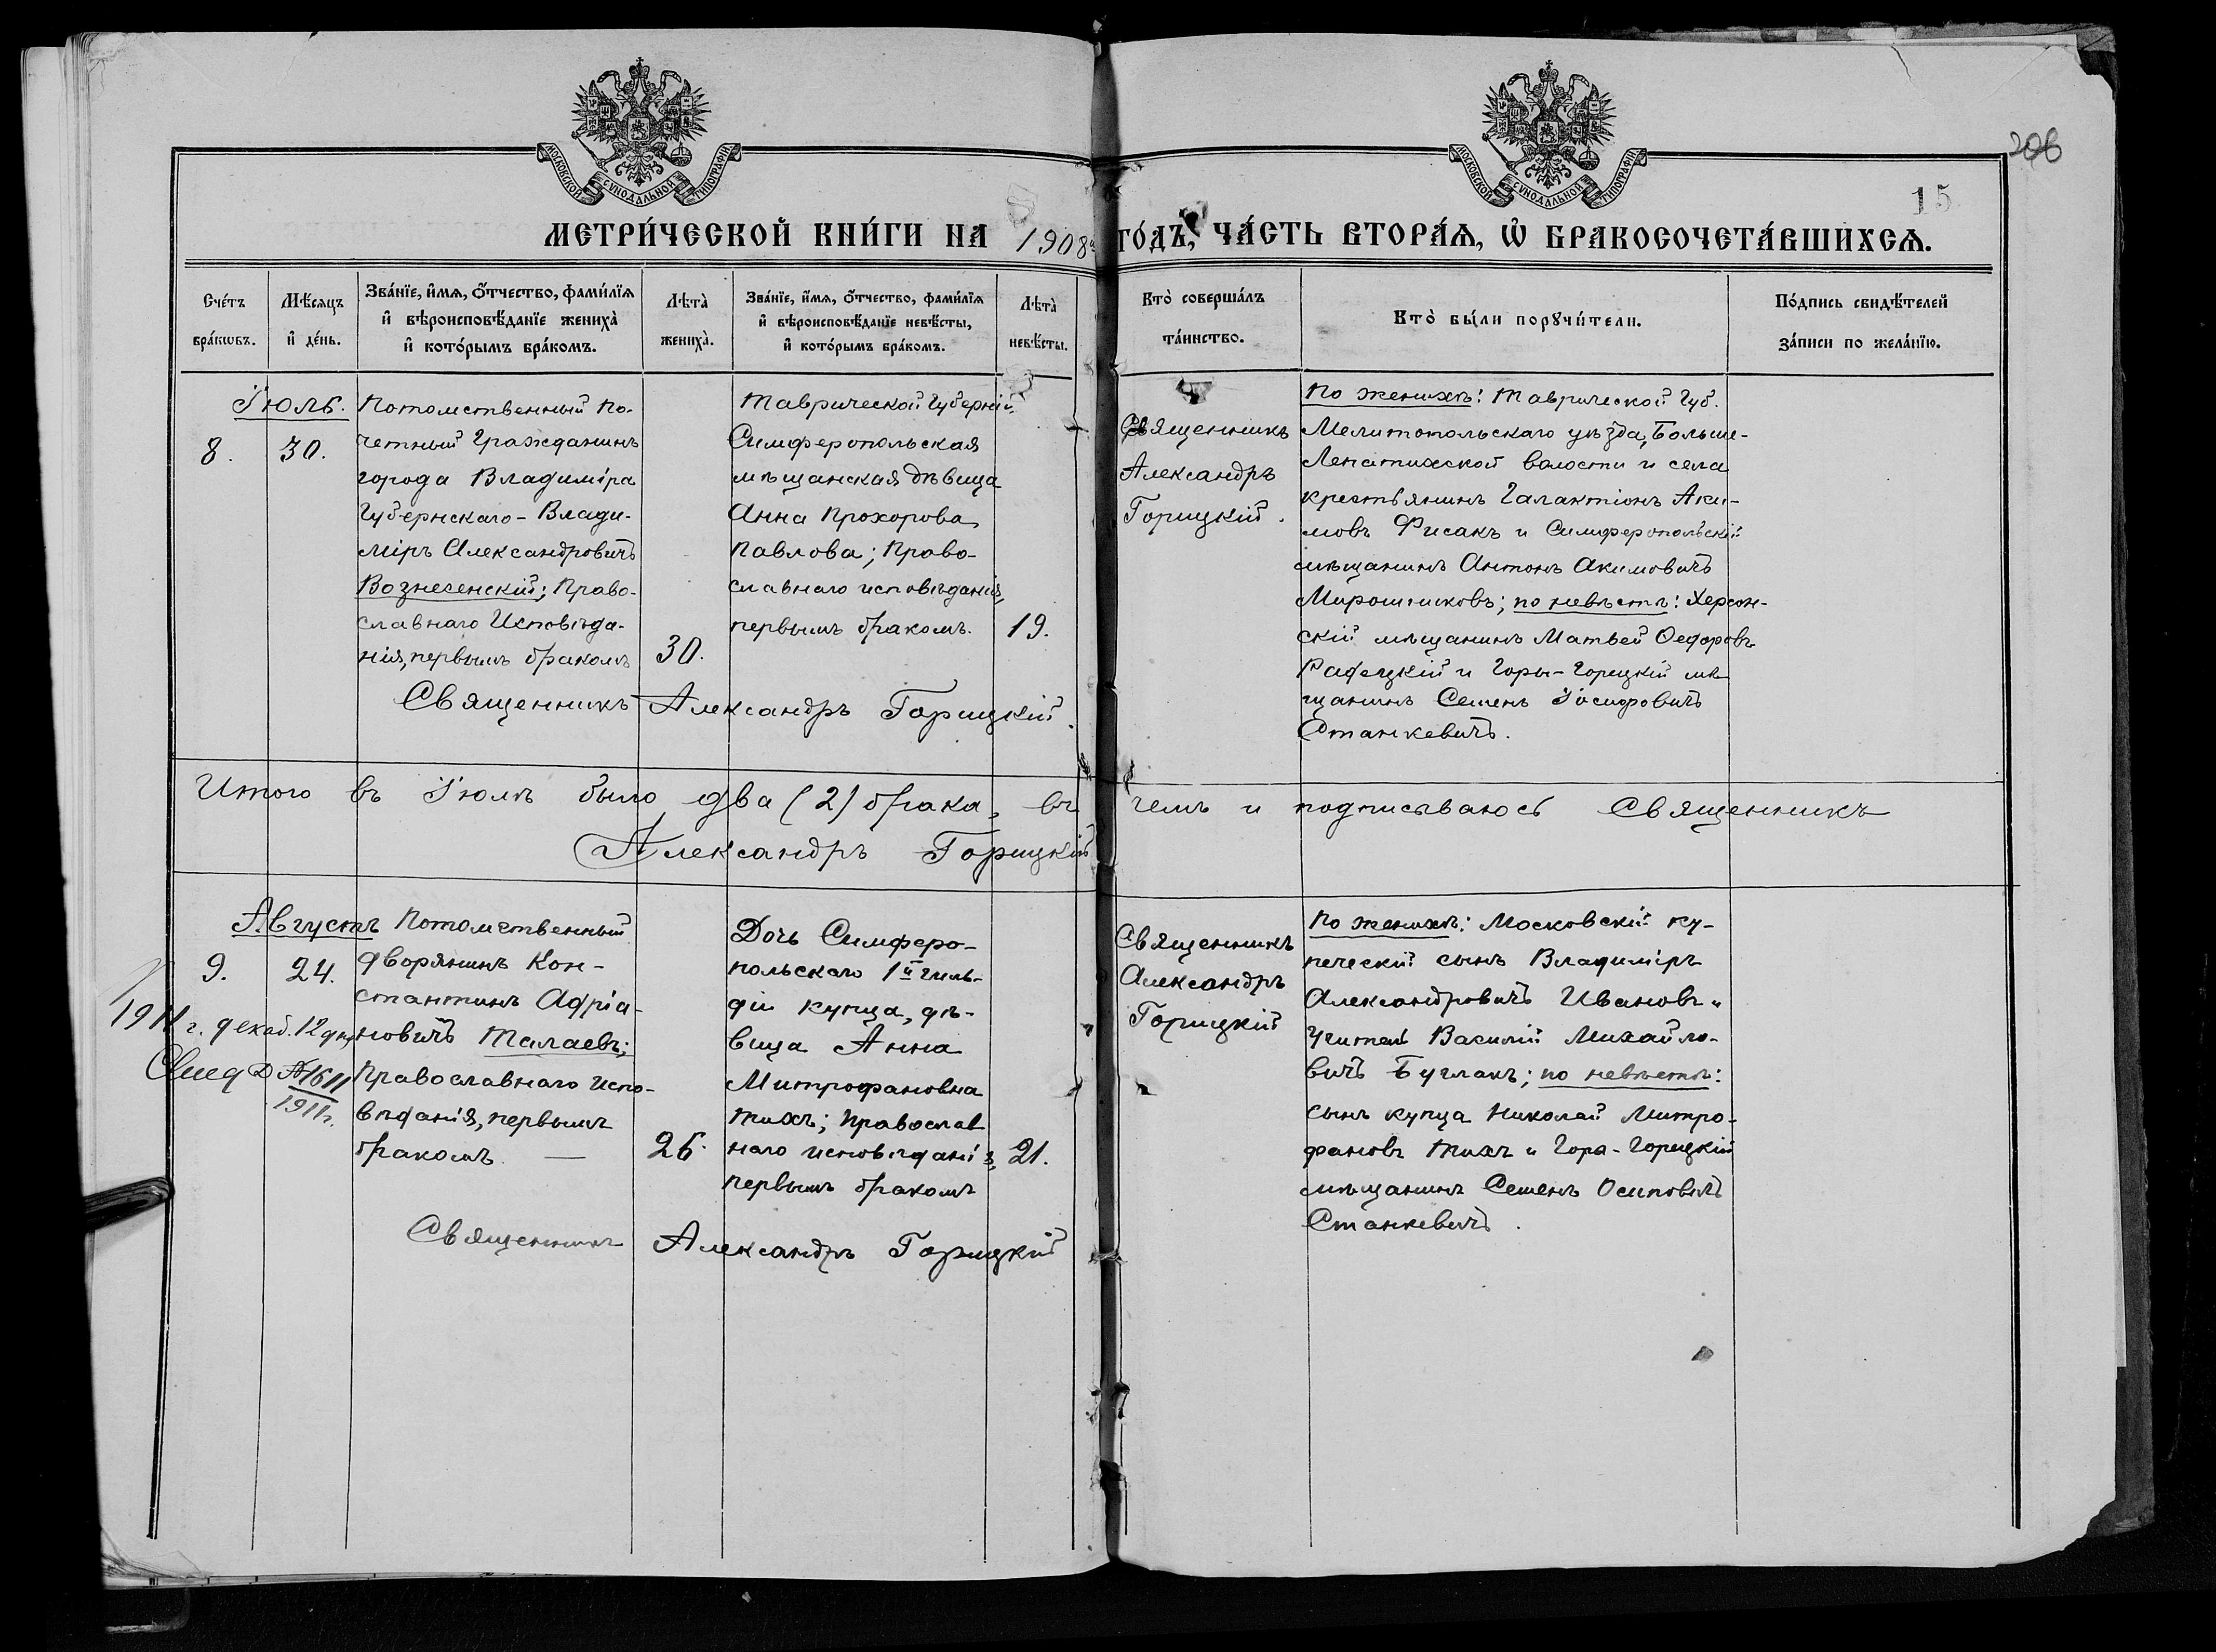 МОСКОВСКОЙ СѴНОДАЛЬНОЙ ТИПОГРАФІИ
МОСКОВСКОЙ СѴНОДАЛЬНОЙ ТИПОГРАФІИ
206
15
МЕТРИ́ЧЕСКОЙ КНИ́ГИ НА 1908й ГО́ДЪ, ЧА́СТЬ ВТОРА́Я, Ѡ҆ БРАКОСОЧЕТА́ВШИХСЯ.
Сче́тъ бра́кωвъ.
Мѣ́сяцъ и҆ де́нь.
Зва́нїе, и҆́мя, ѻ҆́тчество, фами́лїя
и҆ вѣроисповѣ́данїе жениха̀
и҆ кото́рымъ бра́комъ.
Лѣта̀ жениха̀.
Зва́нїе, и҆́мя, ѻ҆́тчество, фами́лїя
и҆ вѣроисповѣ́данїе невѣ́сты,
и҆ кото́рымъ бра́комъ.
Лѣта̀ невѣ́сты.
Кто̀ соверша́лъ та́инство.
Кто̀ бы́ли порꙋчи́тели.
По́дпись свидѣ́телей за́писи по жела́нїю.
Іюль.
8.
30.
Потомственный По-
четный Гражданинъ
города Владиміра
Губернскаго - Влади-
міръ Александровичъ
Вознесенскій; Право-
славнаго Исповѣда-
нія, первымъ бракомъ
30.
Таврической Губерніи
Симферопольская
мѣщанская дѣвица
Анна Прохорова
Павлова; Право-
славнаго исповѣданія,
первымъ бракомъ.
19.
Священникъ Александръ Горицкій.
Священникъ
Александръ
Горицкій.
По женихѣ: Таврической Губ.
Мелитопольскаго уѣзда, Больше-
Лепатихской волости и села
крестьянинъ Галактіонъ Аки-
мовъ Фисакъ и Симферопольскій
мѣщанинъ Антонъ Акимовичъ
Мирошниковъ; по невѣстѣ: Херсон-
скій мѣщанинъ Матвей Ѳедоровъ
Рафецкій и Горы-Горецкій мѣ
щанинъ Семенъ Іосифовичъ
Станкевичъ.
Итого въ Іюлѣ было два (2) брака, въ чемъ и подписываюсь Священникъ
Александръ Горицкій
Августъ
9.
24.
1911 г. декаб. 12 дня
Свид № 1611
1911г.
Потомственный
дворянинъ Кон-
стантинъ Адріа-
новичъ Талаевъ;
Православнаго испо-
вѣданія, первымъ
бракомъ. —
26.
Дочь Симферо-
польскаго 1й гиль-
діи купца, дѣ-
вица Анна
Митрофановна
Тихъ; Православ
наго исповѣданія,
первымъ бракомъ
21.
Священникъ Александръ Горицкій
Священникъ
Александръ
Горицкій
По женихѣ: Московскій ку-
печескій сынъ Владиміръ
Александровичъ Ивановъ и
Учитель Василій Михайло-
вичъ Буглакъ; по невѣстѣ:
сынъ купца Николай Митро-
фановъ Тихъ и Гора-Горецкій
мѣщанинъ Семенъ Осиповичъ
Станкевичъ.